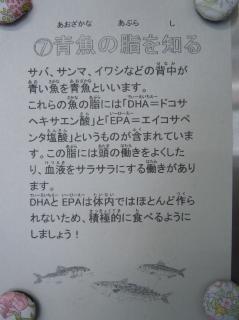 ⑦青魚の脂を知る
サバ、サンマ、イワシなどの背中が
青い魚を青魚といいます。
これらの魚の脂には「DHA＝ドコサ
ヘキサエン酸」と「EPA＝エイコサペ
ンタ塩酸」というものが含まれていま
す。この脂には頭の働きをよくした
り、血液をサラサラにする働きがあり
ます。
DHAとEPAは体内ではほとんど作ら
れないため、積極的に食べるように
しましょう！